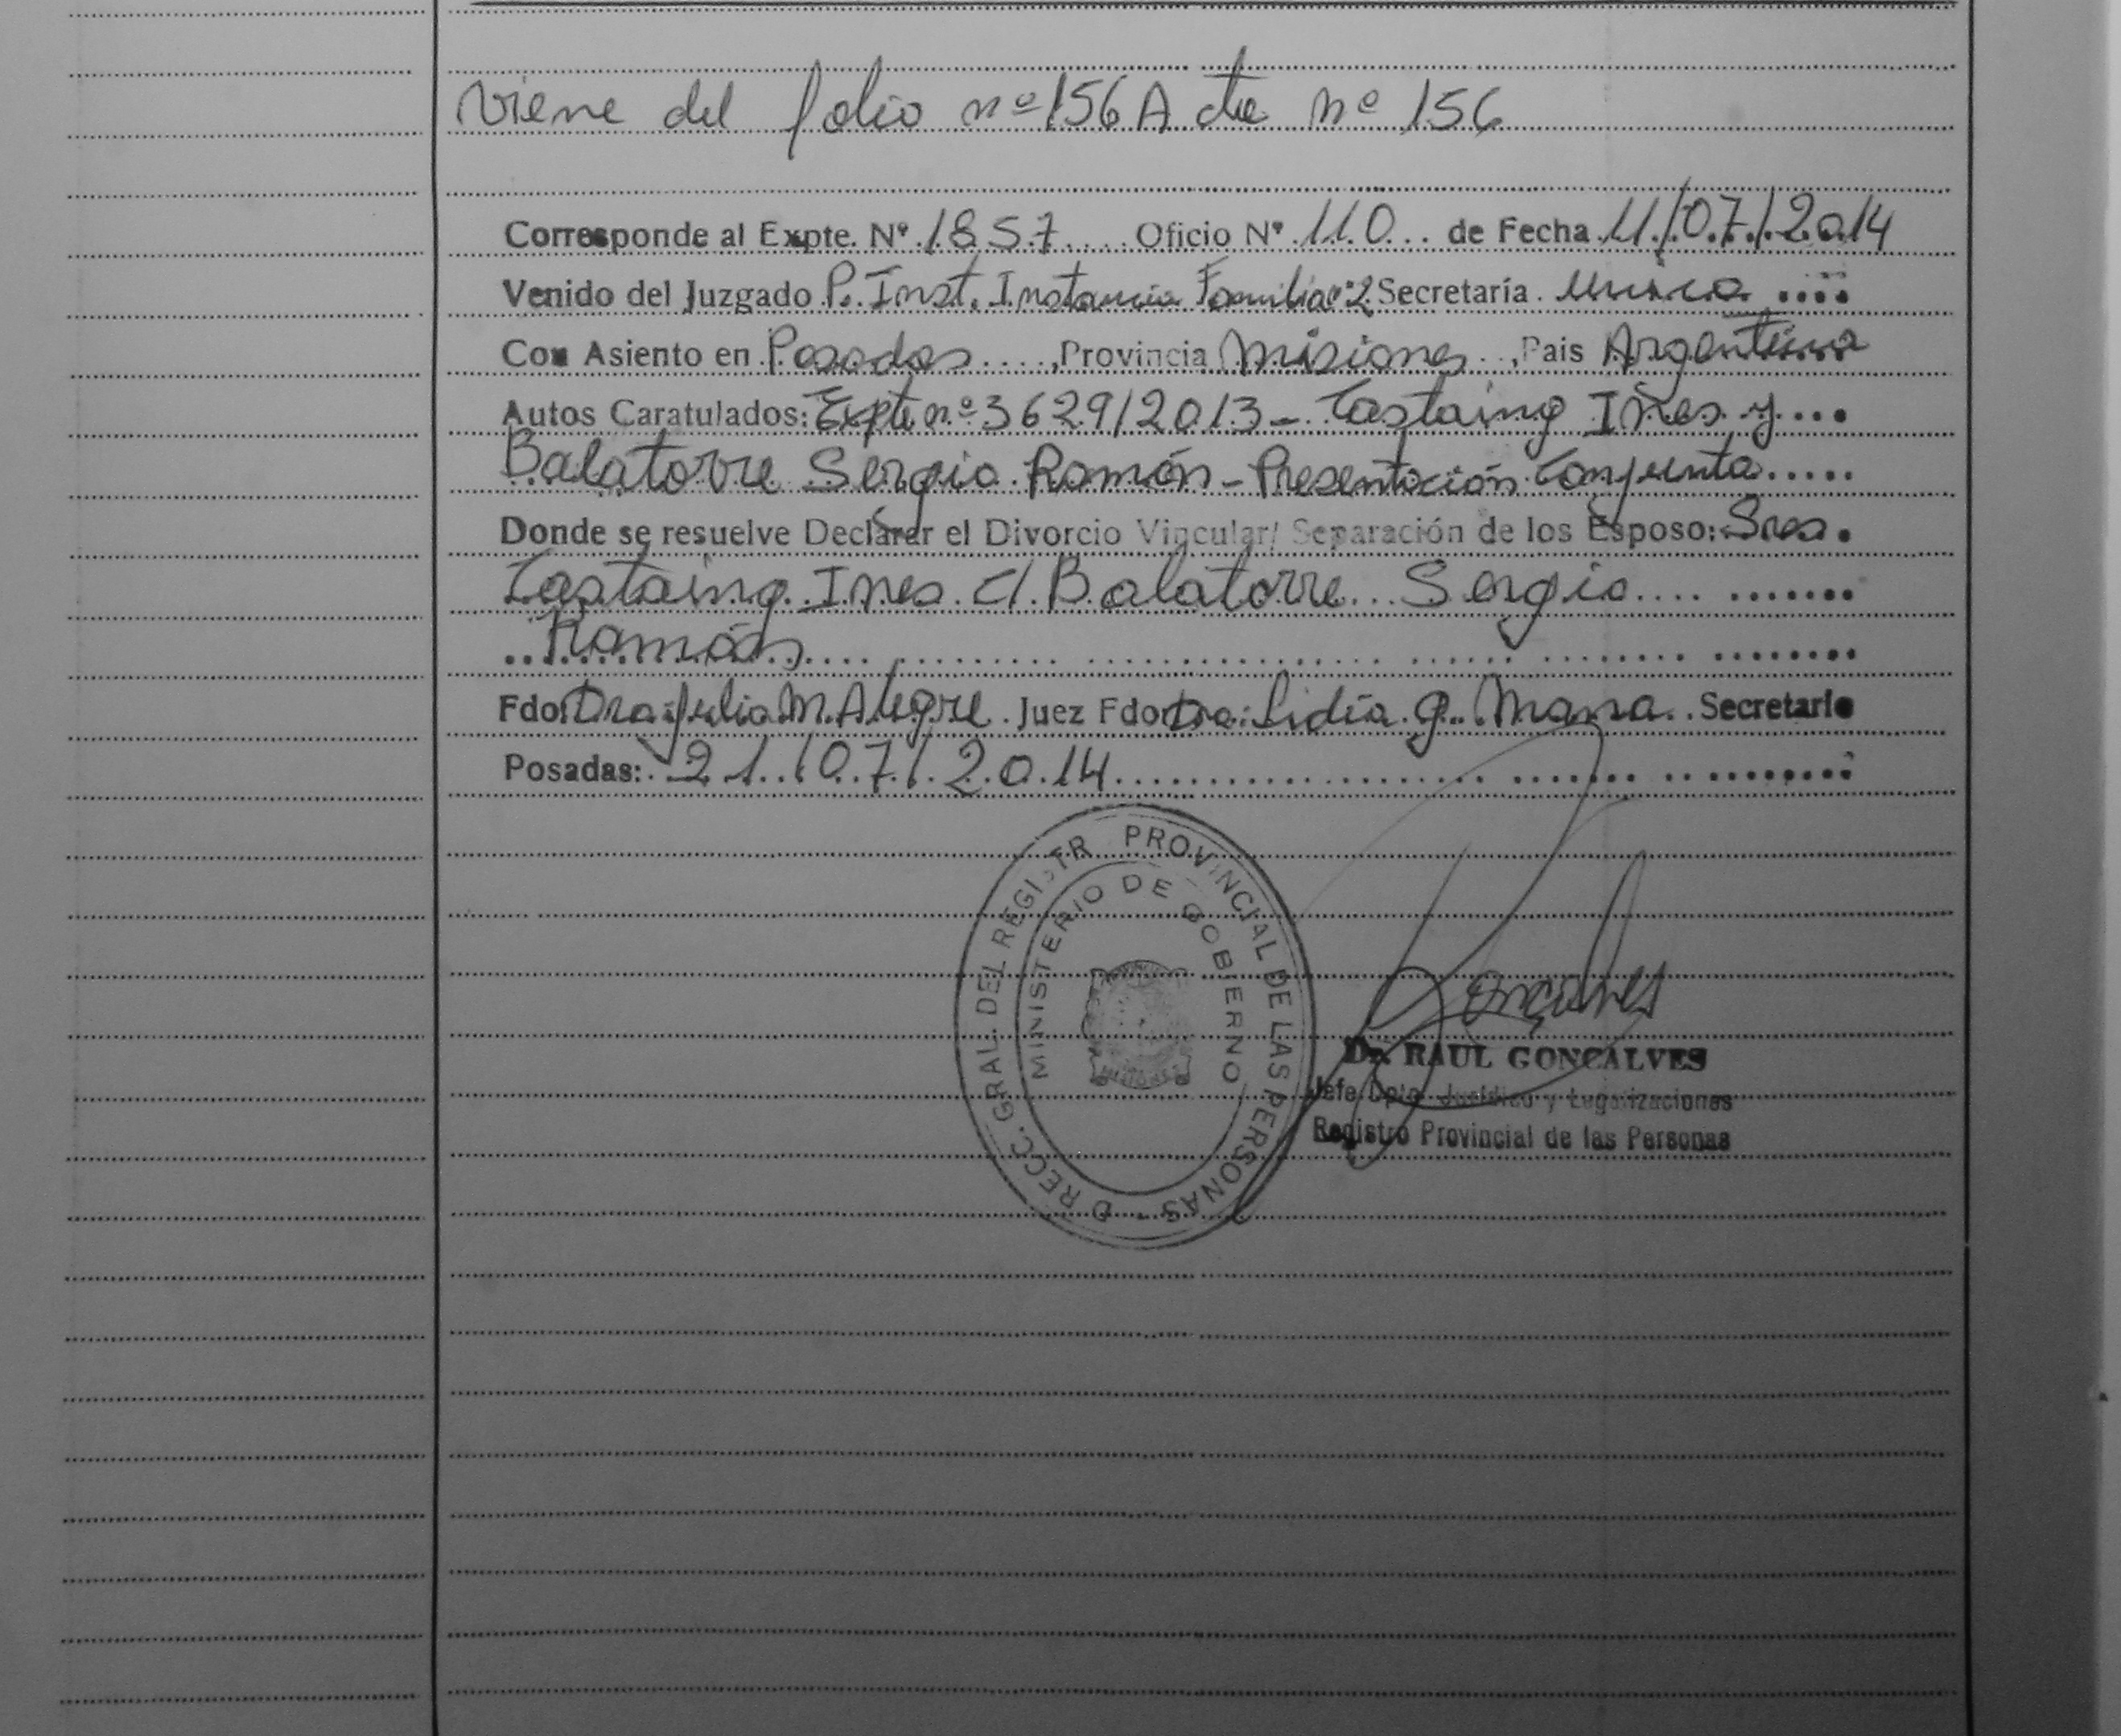 Viene del folio nº 156 Acta nº 156
Corresponde al Expte. Nº 1857 Oficio Nº 110 de Fecha 11/07/2014
Venido del Juzgado P. Inst. Instancia Familia nº2 Secretaría Unica
Con Asiento en Posadas, Provincia Misiones, Pais Argentina
Autos Caratulados: Expte nº 3629/2013 - Castaing Iñes y
Balatorre Sergio Ramón - Presentación Conjunta
Donde se resuelve Declarar el Divorcio Vincular/ Separación de los Esposo: Sres.
Castaing Ines c/ Balatorre Sergio
Ramón
Fdo: Dra. Julia M. Alegre Juez Fdo: Dra: Lidia g. Secretario
Posadas: 21/07/2014
DIRECC. GRAL. DEL REGISTR PROVINCIAL DE LAS PERSONAS -
MINISTERIO DE GOBIERNO
MISIONES
Goncalves
Dr. RAUL GONCALVES
Jefe Dpto. Jurídico y Legalizaciones
Registro Provincial de las Personas